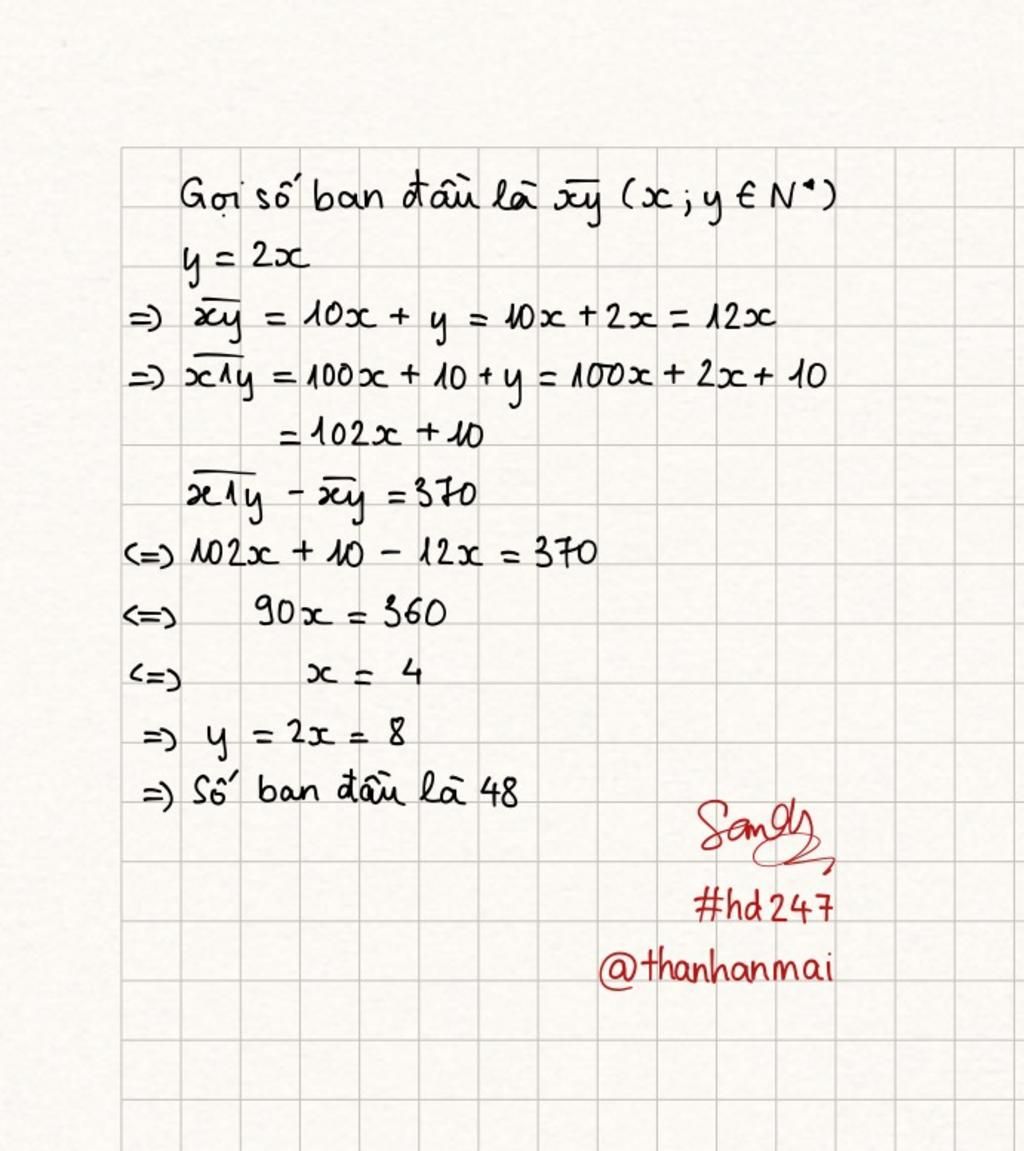 Gọi số ban đầu là x̅y̅ (x; y ∈ N*)
y = 2x
=) x̅y̅ = 10x + y = 10x + 2x = 12x
=) x̅1̅y̅ = 100x + 10 + y = 100x + 2x + 10
= 102x + 10
x̅1̅y̅ - x̅y̅ = 370
(=) 102x + 10 - 12x = 370
(=) 90x = 360
(=) x = 4
=) y = 2x = 8
=) Số ban đầu là 48
Sandy
#hd247
@thanhanmai